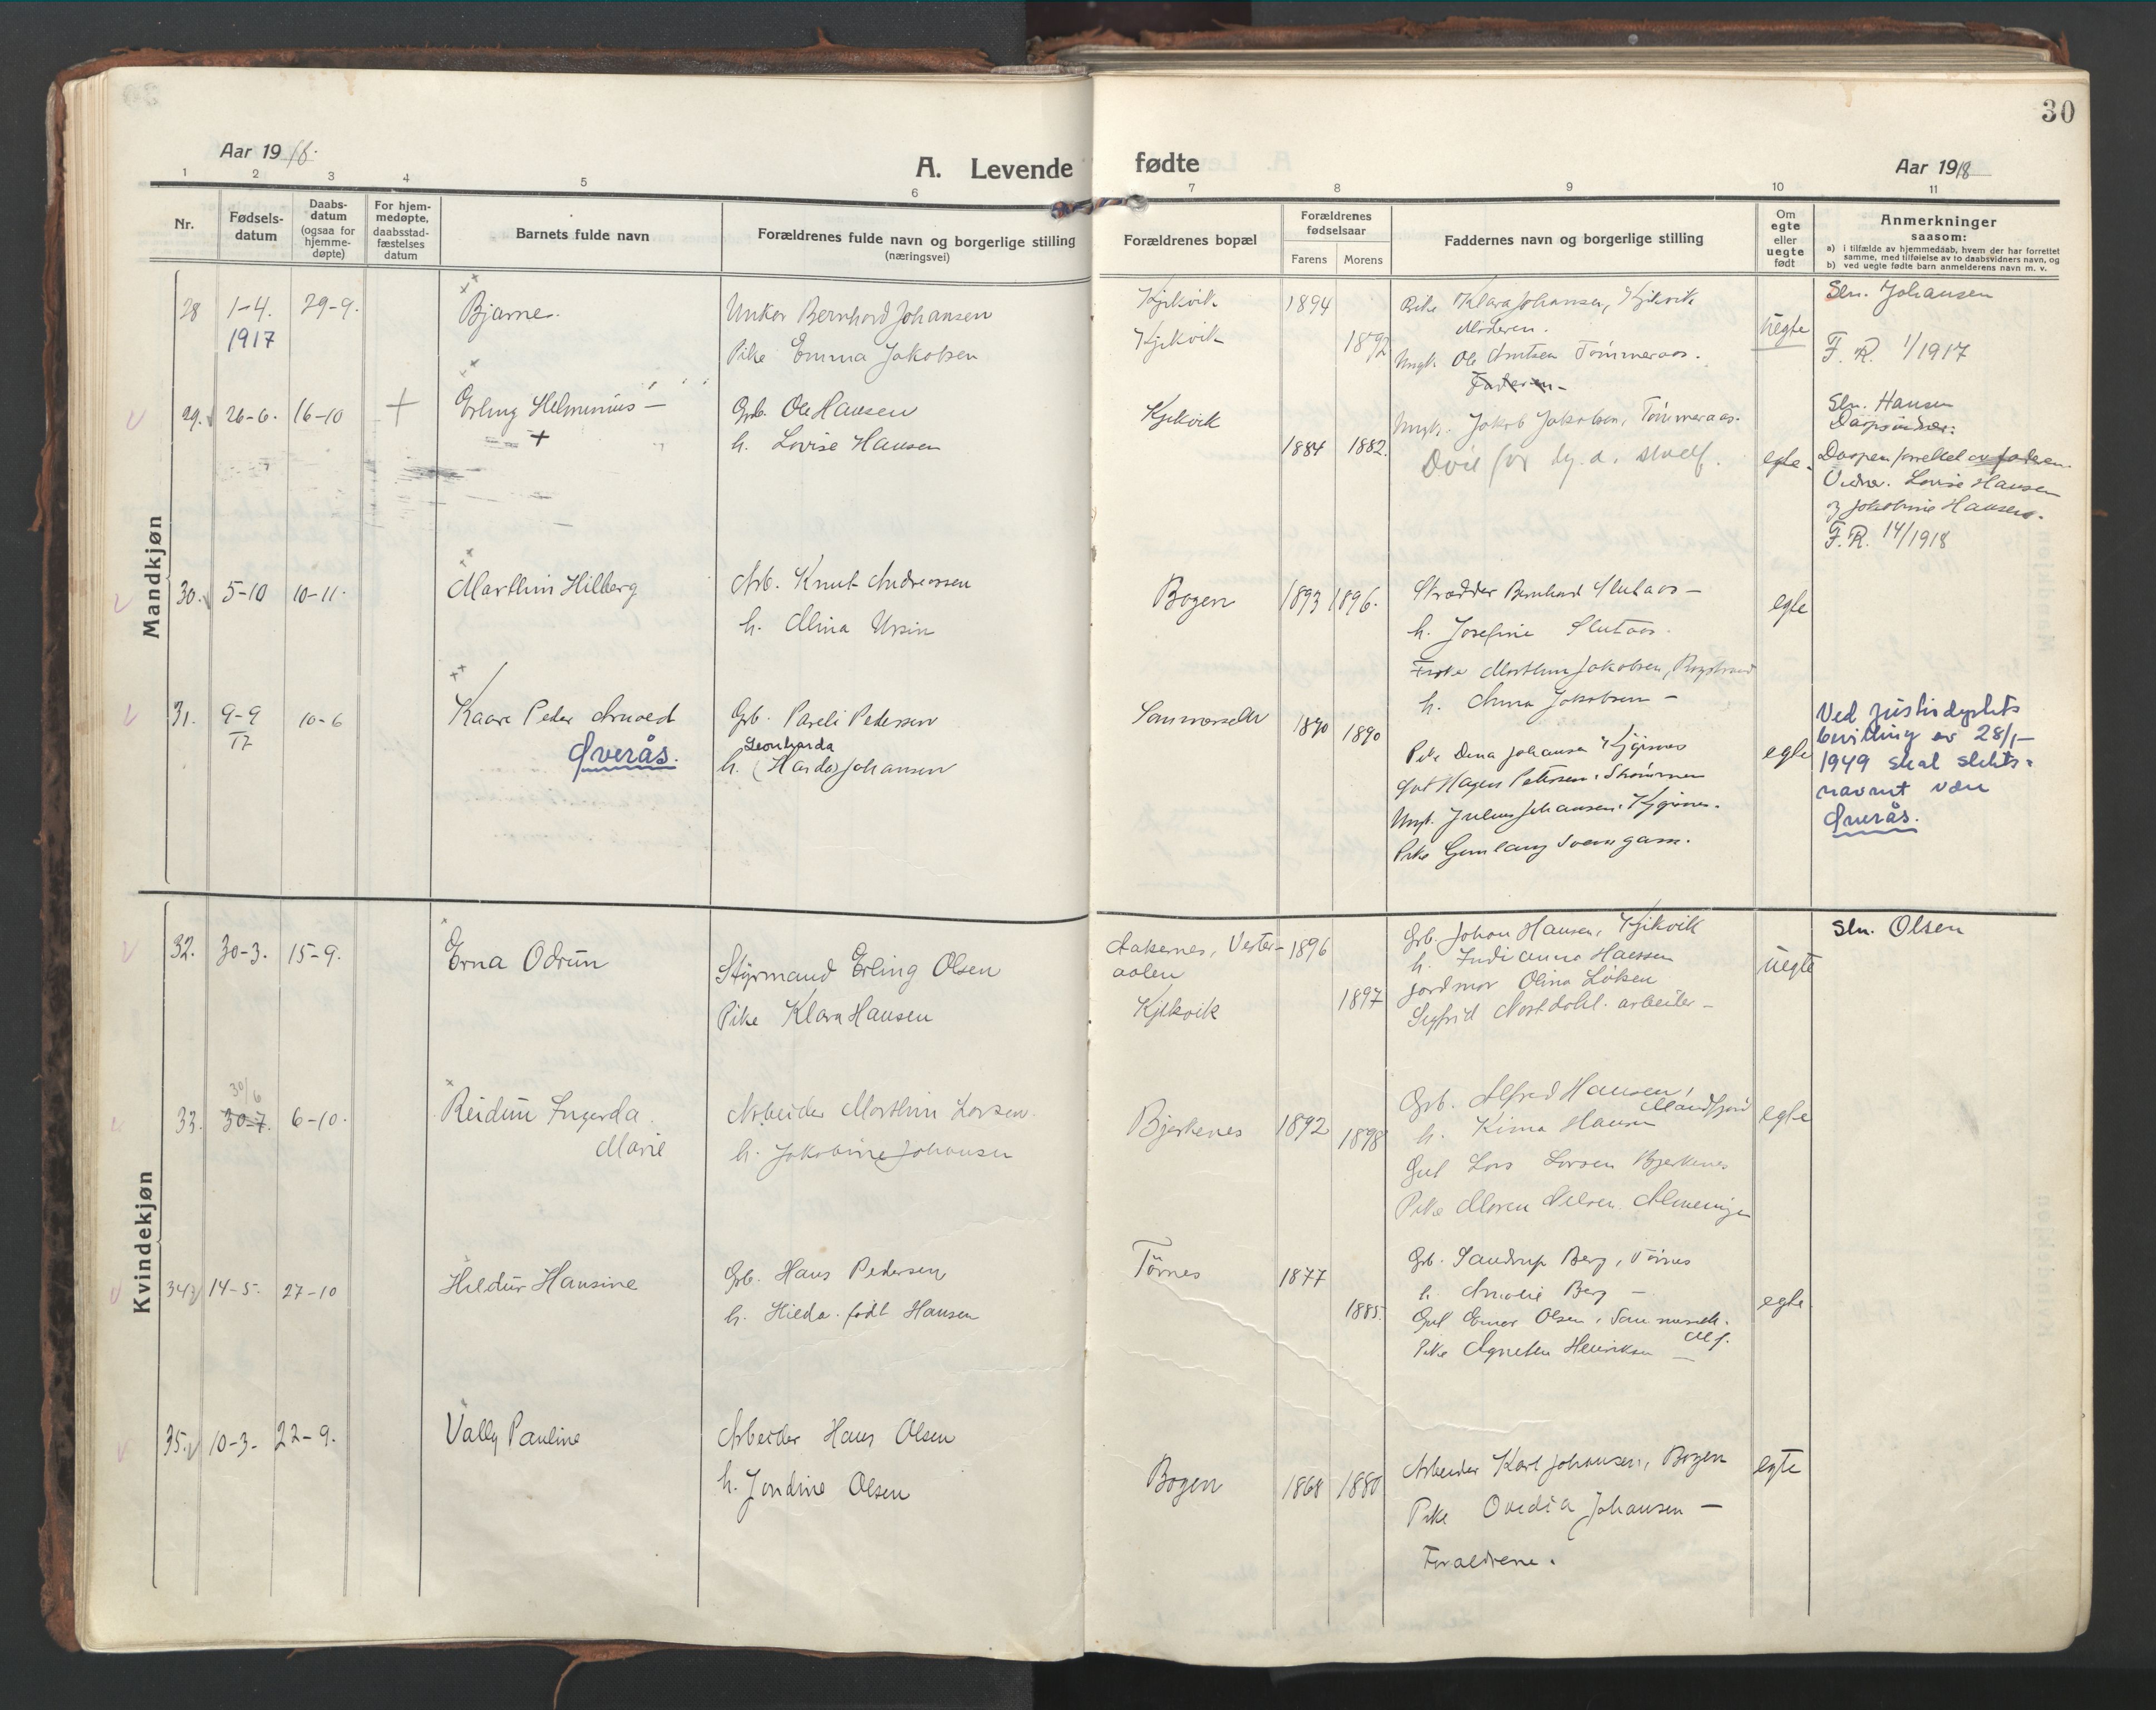 30
Aar 1918.
A. Levende
fødte
Aar 1918
1 2 3 4 5 6 7 8 9 10 11
Nr.
Fødsels-
datum
Daabs-
datum
(ogsaa for
hjemme-
døpte)
For hjem-
medøpte,
daabsstad-
fæstelses
datum
Barnets fulde navn
Forældrenes fulde navn og borgerlige stilling
(næringsvei)
Forældrenes bopæl
Forældrenes
fødselsaar
Farens
Morens
Faddernes navn og borgerlige stilling
Om
egte
eller
uegte
født
Anmerkninger
saasom:
a) i tilfælde av hjemmedaab, hvem der har forrettet
samme, med tilføielse av to daabsvidners navn, og
b) ved uegte fødte barn anmelderens navn m. v.
Mandkjøn
28 1-4. 29-9.
1917
Bjarne.
Unkar Bernhard Johansen
Pike Emma Jakobsen
Kjikvik 1894
Kjikvik 1892
Pike Klara Johansen, Kjikvik
Moderen.
Ungk. Ole Arntsen Tømmeraas.
Faderen
uegte
Sln. Johansen
F. R. 1/1917
29. 26-6. 16-10 +
Erling Helminius
+
Grb. Ole Hansen
h. Lovise Hansen
Kjikvik
1884 1882.
Ungk. Jakob Jakobsen, Tømmeraas.
egte.
Sln. Hansen
Daapsvidner:
Daapen forrettet av faderen.
Vidner. Lovise Hansen
og Jakobine Hansen.
F. R. 14/1918
30. 5-10 10-11.
Marthin Hilberg
Arb. Knut Andreassen
h. Alma Ursin
Bogen 1893 1896.
Skrædder Bernhard Slutaas
h. Josefine Slutaas.
Marthin Jakobsen,
h. Anna Jakobsen
egte
31. 9-9 10-6
17
Kaare Peder Arnoed
Øverås.
Grb. Pareli Pedersen
Leonharda
h. (Harda) Johansen
1890 1890
Pike Dena Johansen
Gut Hagen Petersen,
Ungk. Julius Johansen,
Pike Gunlaug
egte
Ved justisdeptets
bevilling av 28/1-
1949 skal slekts-
navnet være
Øverås.
Kvindekjøn
32. 30-3. 15-9.
Erna Odrun
Styrmand Erling Olsen
Pike Klara Hansen
Aakernes, Vester- 1896
aalen
Kjikvik 1897
Grb. Johan Hansen, Kjikvik
h. Indianna Hanssen
Jordmor Olina Løksen
Sigfrid Nordahl. arbeider
uegte
Sln. Olsen
30/6
33. 30-7. 6-10.
Reidun Ingerda
Marie
Arbeider Marthin Larsen.
h. Jakobine Johansen
Bjerkenes 1892 1898
Grb. Alfred Hansen,
h. Kima Hansen
Gut Lars Larsen Bjerkenes
Pike Maren Nilsen.
egte
34. 14-5. 27-10
Hildur Hansine
Grb. Hans Pedersen
h. Hilda. født Hansen
Tørnes 1877
1885.
Grb. Sandrup Berg, Tørnes
h. Amalie Berg
Gut Einar Olsen,
Pike Agnethe Henriksen
egte.
35. 10-3- 22-9.
Vally Pauline
Arbeider Hans Olsen
h. Jondine Olsen
Bogen 1868 1880
Arbeider Karl Johansen, Bogen
Pike Ovedia Johansen
Forældrene.
egte